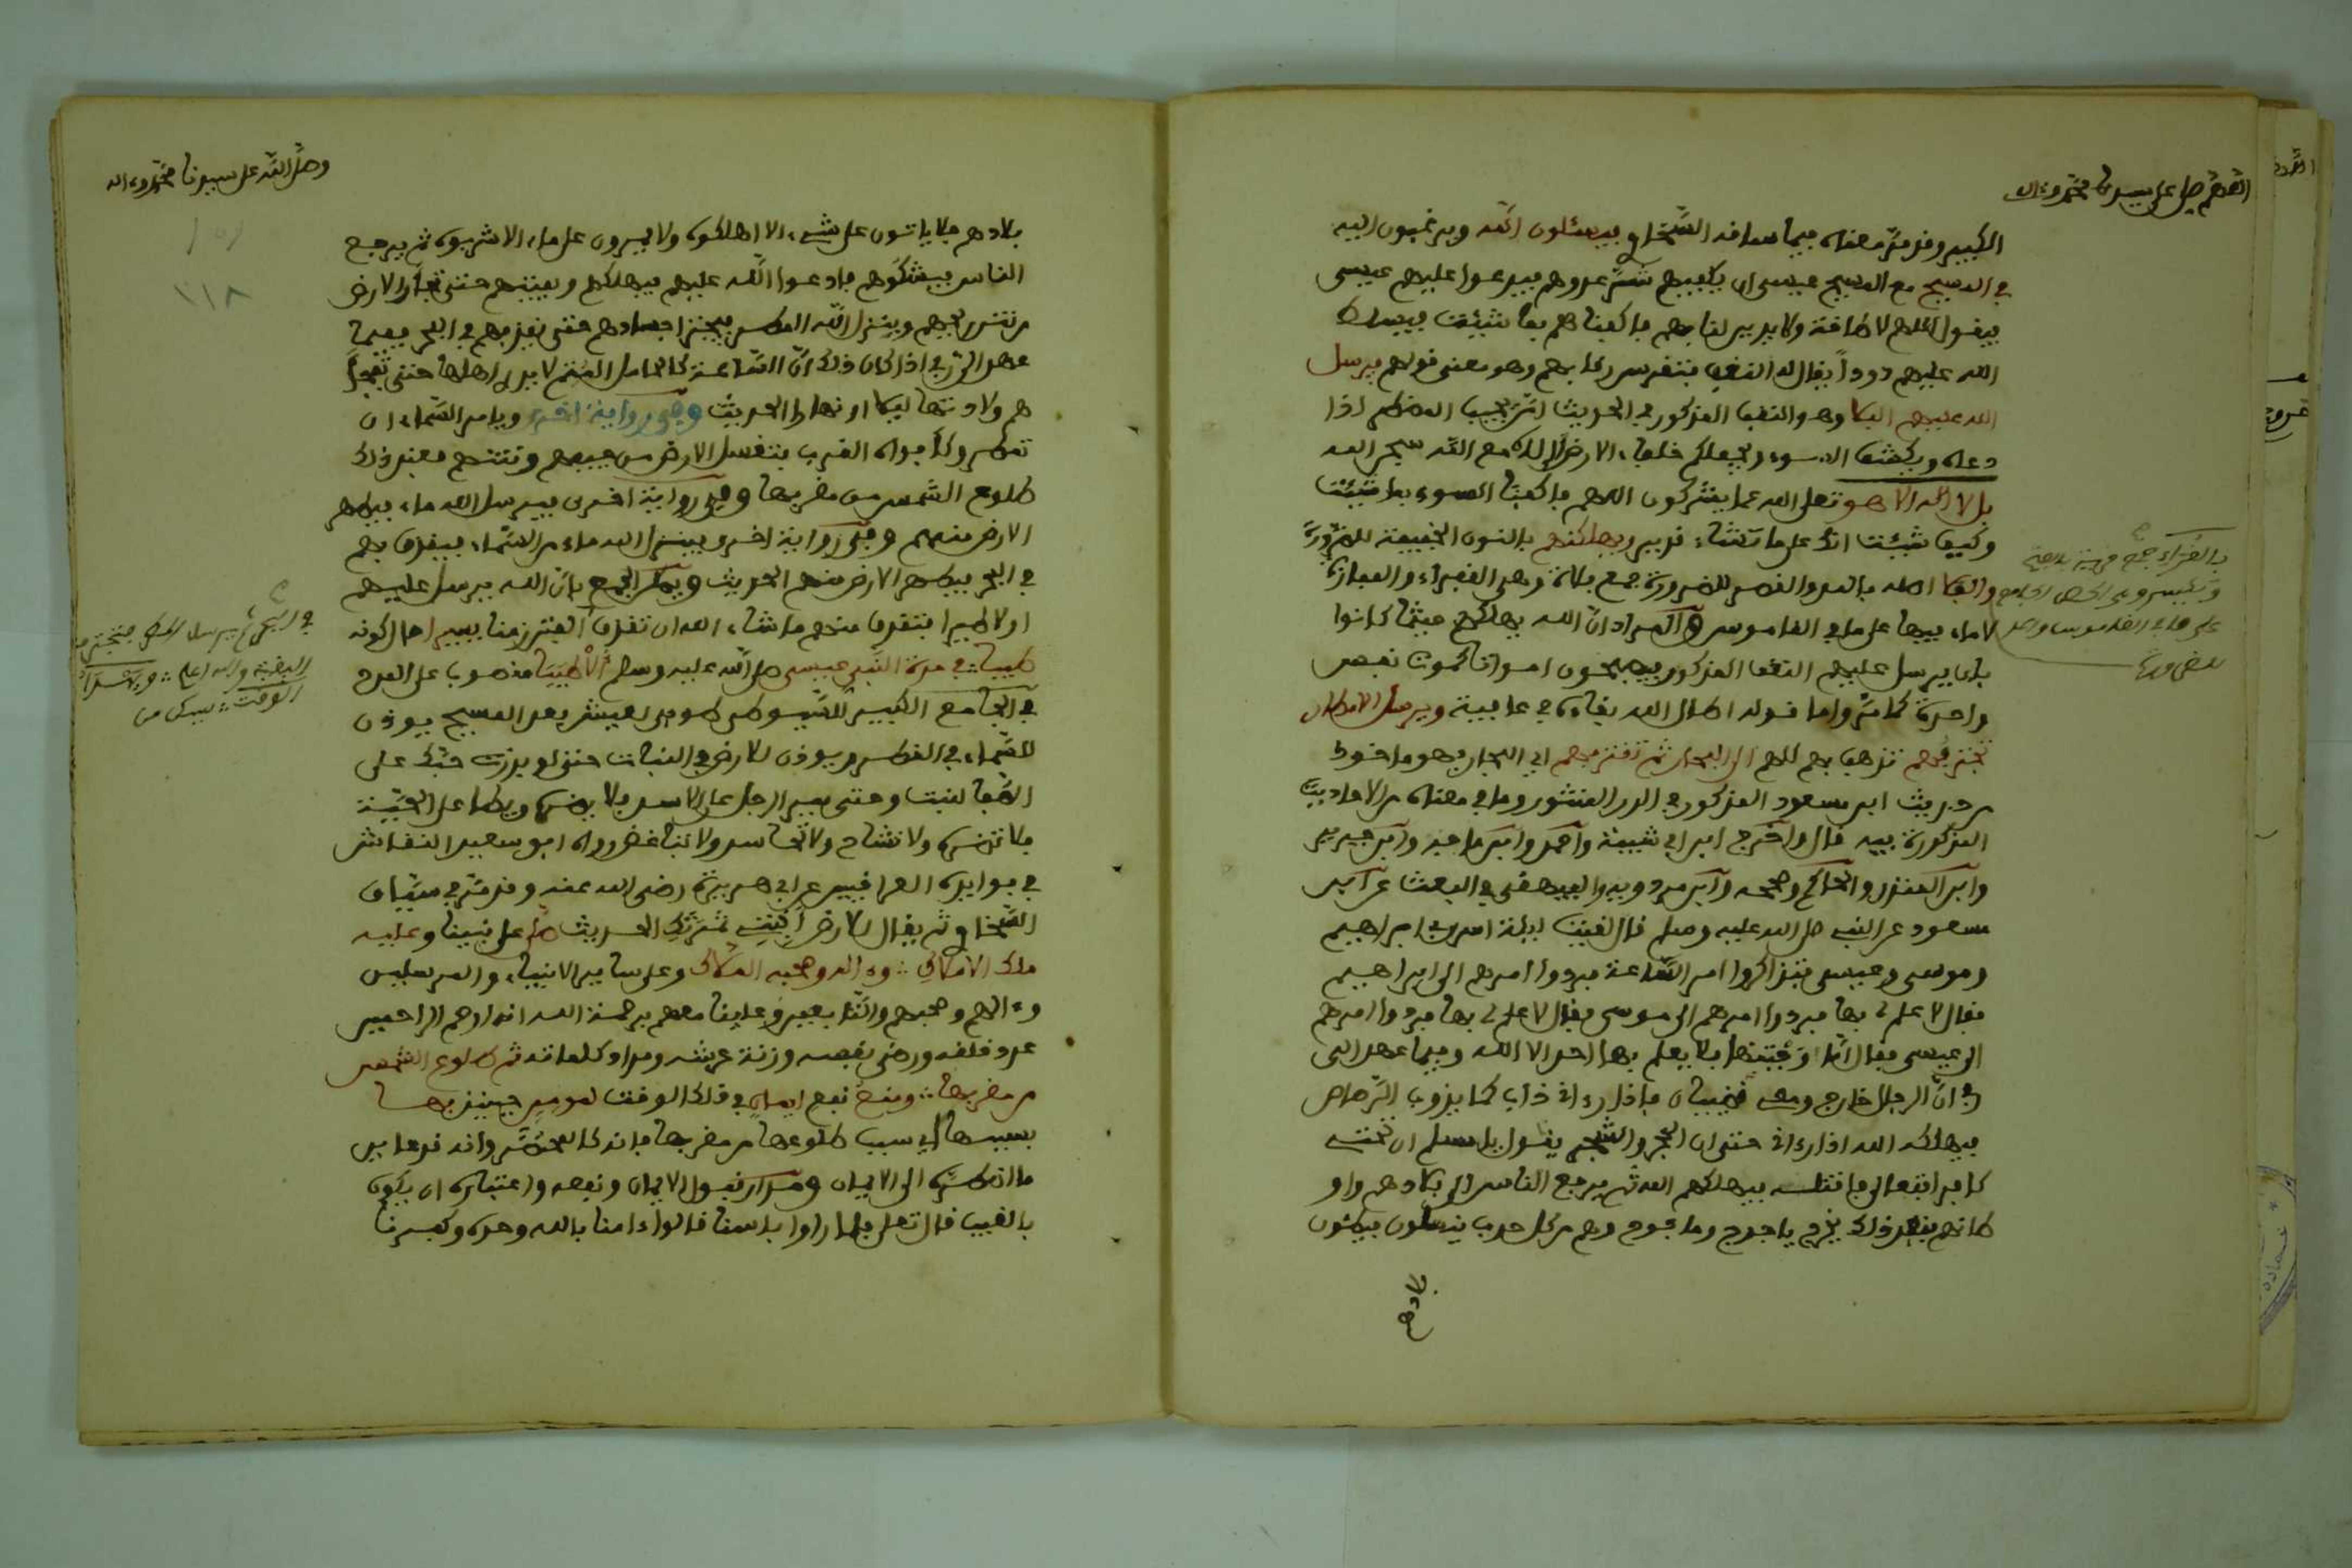 اللهم صل على سيدنا محمد وءاله
الكبير وقد مر معناه فيما ساقه السخاوي فيسئلون الله ويرغبون اليه
في المسيح مع المسيح عيسى ان يكفيهم شر عدوهم فيدعوا عليهم عيسى
فيقول اللهم لا طاقة ولا يدين لنا بهم فاكفناهم بما شئت فيسلط
الله عليهم دودا يقال له النغف فتفرس رقابهم وهو معنى قولهم يرسل
الله عليهم البلا وهو النغف المذكور في الحديث امن يجيب المضطر اذا
دعاه ويكشف السوء ويجعلكم خلفاء الارض أإلاه مع الله سبحن الله
بل لا اله الا هو تعلى الله عما يشركون اللهم فاكفنا السوء بما شئت
وكيف شئت انك على ما تشاء قدير ويهلكهم بالنون الخفيفة للضرورة
والفلا اصله بالمد والقصر للضرورة جمع فلاة وهي القفراء والمفازة
لا ماء فيها على ما في القاموس والمراد ان الله يهلكهم حيثما كانوا
بان يرسل عليهم النغف المذكور فيصبحون امواتا كموت نفس
واحدة كما مر واما قوله اطال الله بقاءه في عافية ويرسل الامطار
تجترفهم تذهب بهم للهم الى البحار ثم تقذفهم اي البحار فهو ماخوذ
من حديث ابن مسعود المذكور في الدر المنثور وما في معناه من الاحاديث
المذكورة فيه قال واخرج ابن ابي شيبة واحمد وابن ماجه وابن جرير
وابن المنذر والحاكم وصححه وابن مردويه والبيهقي في البعث عن ابن
مسعود عن النبي صلى الله عليه وسلم قال لقيت ليلة اسري بي ابراهيم
وموسى وعيسى فتذاكروا امر الساعة فردوا امرهم الى ابراهيم
فقال لا علم لي بها فردوا امرهم الى موسى فقال لا علم لي بها فردوا امرهم
الى عيسى فقال اما وجبتها فلا يعلم بها احد الا الله وفيما عهد الي
ربي ان الدجال خارج ومعي قضيبان فاذا رءاني ذاب كما يذوب الرصاص
فيهلكه الله اذا رءاني حتى ان الحجر والشجر يقول يا مسلم ان تحتي
كافرا فتعال فاقتله فيهلكهم الله ثم يرجع الناس الى بلادهم واو
طانهم فعند ذلك يخرج ياجوج وماجوج وهم من كل حدب ينسلون فيطئون
بلادهم
على ما في القاموس
وصلى الله على سيدنا محمد وءاله
١١٨
بلادهم فلا ياتون على شيء الا اهلكوه ولا يمرون على ماء الا شربوه ثم يرجع
الناس فيشكوهم فادعوا الله عليهم فيهلكهم ويميتهم حتى تجأر الارض
من نتن ريحهم وينزل الله المطر فيجترف اجسادهم حتى يقذفهم في البحر ففيما
عهد الي ربي اذا كان ذلك ان الساعة كالحامل المتم لا يدري اهلها حتى تفجأ
هم ولادتها ليلا او نهارا الحديث وفي رواية اخرى ويامر السماء ان
تمطر وكأفواه القرب فتغسل الارض من جيفهم ونتنهم فعند ذلك
طلوع الشمس من مغربها وفي رواية اخرى فيرسل الله ماء فيطهر
الارض منهم وفي رواية اخرى فينزل الله ماء من السماء فيقذف بهم
في البحر فيطهر الارض منهم الحديث ويمكن الجمع بان الله يرسل عليهم
اولا طيرا فتقذف منهم ما شاء الله ان تقذف العيش زمنا يسيرا حال كونه
طيبا في مدة النبي عيسى صلى الله عليه وسلم الاطيبا منصوب على المدح
في الجامع الكبير للسيوطي طوبى لعيش بعد المسيح يوذن
للسماء في القطر ويوذن للارض في النبات حتى لو بذرت حبك على
الصفا لنبت وحتى يمر الرجل على الاسد فلا يضره ويطا على الحية
فلا تضره ولا تشاح ولا تحاسد ولا تباغض رواه ابو سعيد النقاش
في فوايد العراقيين عن ابي هريرة رضي الله عنه وقد مر في سياق
السخاوي ثم يقال للارض انبتي ثمرتك الحديث صل على نبينا وعليه
ملك الاملاك وءاله وصحبه الملاك وعلى ساير الانبياء والمرسلين
وءالهم وصحبهم والتابعين وعلينا معهم برحمة الله انه ارحم الراحمين
عدد خلقه ورضى نفسه وزنة عرشه ومداد كلماته ثم طلوع الشمس
من مغربها ومنع نفع ايمان في ذلك الوقت لمومن حينئذ بها
بسببها اي سبب طلوعها من مغربها فانه كالمحتضر وانه قد عاين
ما اضطره الى الايمان ومدار قبول الايمان ونفعه واعتباره ان يكون
بالغيب قال تعلى فلما راوا باسنا قالوا ءامنا بالله وحده وكفرنا